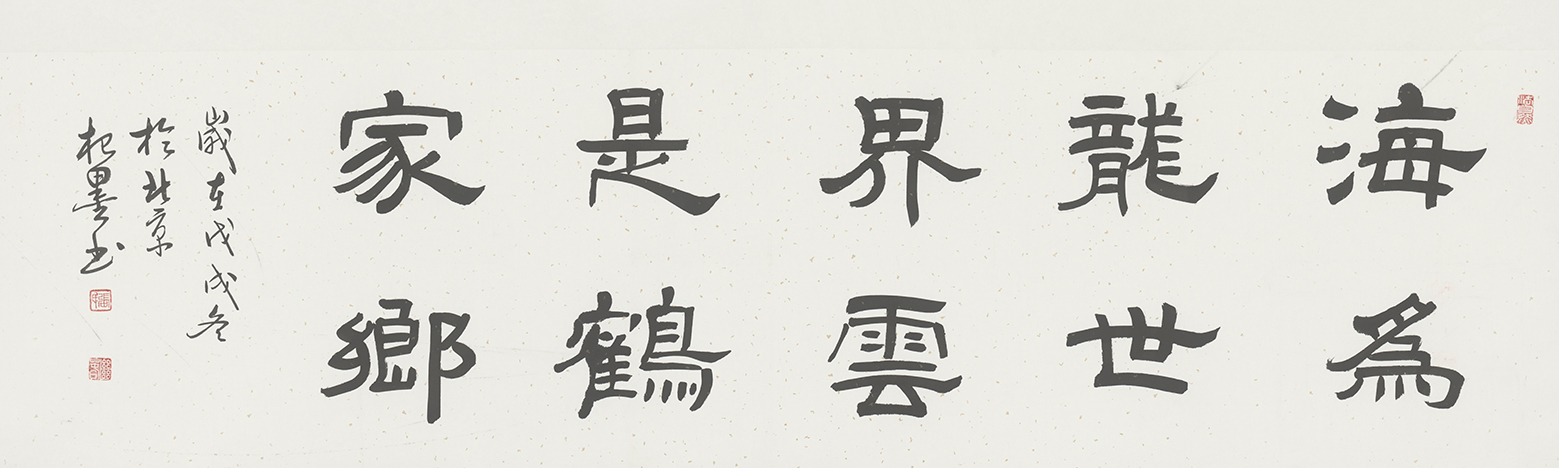 海為
龍世
界雲
是鶴
家鄉
歲在戊戌冬
於北京
杞墨書